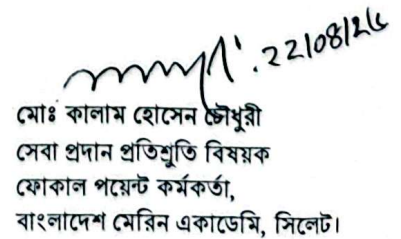 22/08/26
মোঃ কালাম হোসেন চৌধুরী
সেবা প্রদান প্রতিশ্রুতি বিষয়ক
ফোকাল পয়েন্ট কর্মকর্তা,
বাংলাদেশ মেরিন একাডেমি, সিলেট।